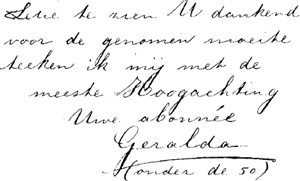 te zien U dankend
voor de genomen moeite
teeken ik mij met de
meeste Hoogachting
Uwe abonnée
Geralda
(onder de 50)